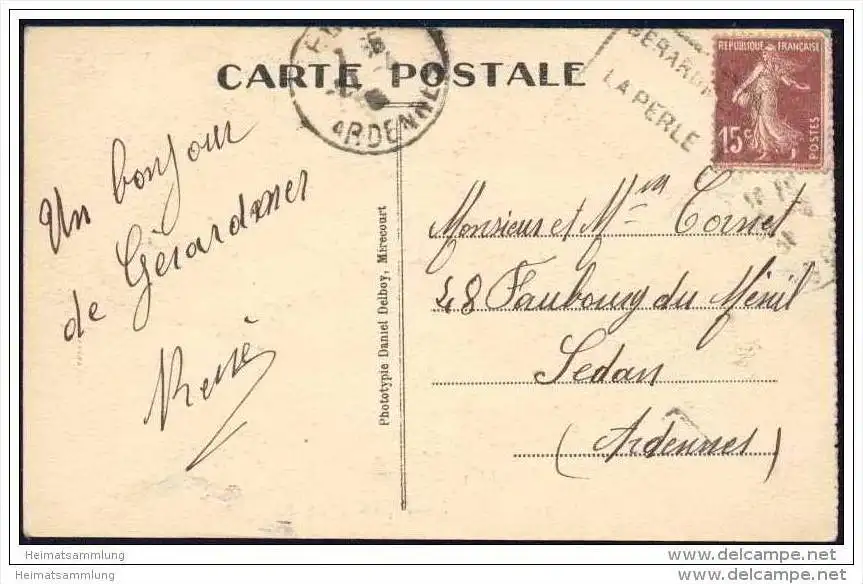 CARTE POSTALE
ARDENNES
GERARDM
LA PERLE
REPUBLIQUE FRANÇAISE
15c
POSTES
Un bonjour
de Gérardmer
René
Phototypie Daniel Delboy, Mirecourt
Monsieur et Mme Cornet
48 Faubourg du Ménil
Sedan
(Ardennes)
Heimatsammlung
Heimatsammlung
www.delcampe.net
www.delcampe.net